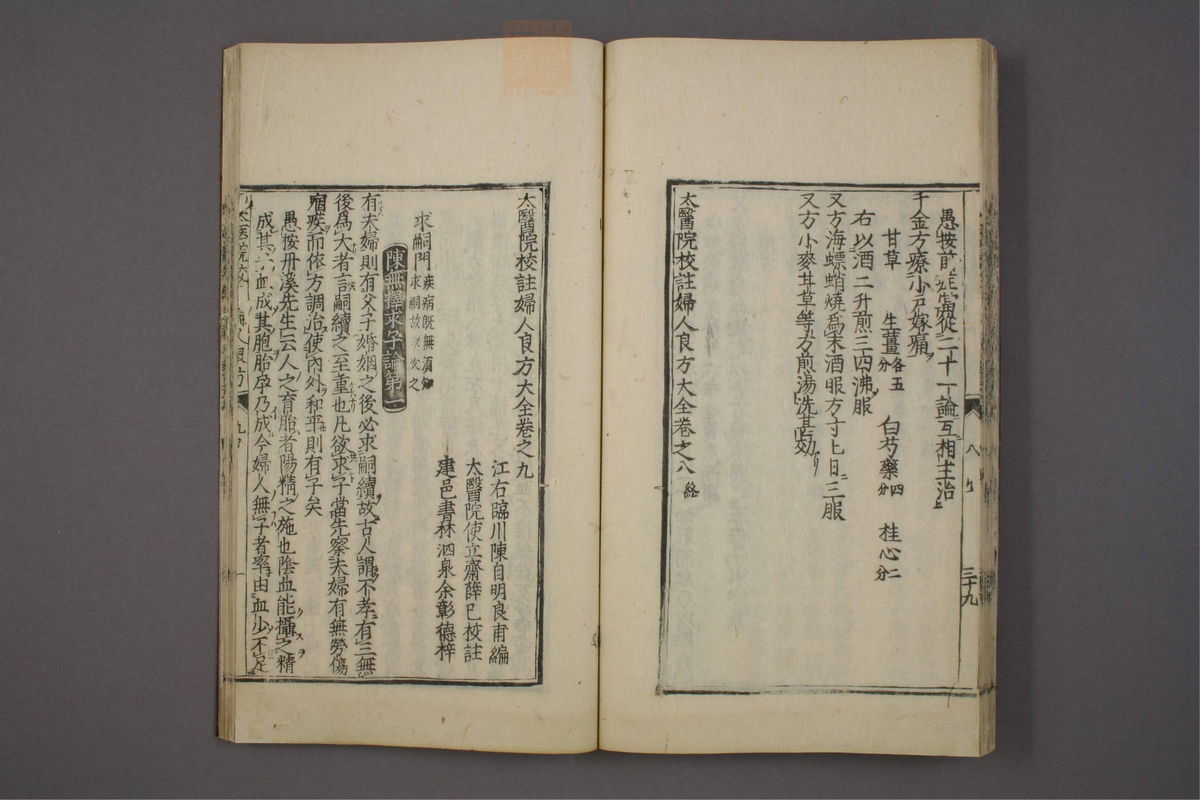 愚按前症當從二十一論互相主治
千金方療小戸嫁痛
甘草 生薑各五分 白芍藥四分 桂心二分
右以酒二升煎三四沸服
又方海螵蛸燒爲末酒服方寸匕日三服
又方小麥甘草等分煎湯洗甚効
太醫院校註婦人良方大全卷之八終
八
三十九
太醫院校註婦人良方大全卷之九
江右臨川陳自明良甫編
太醫院使立齋薛已校註
建邑書林泗泉余彰德梓
求嗣門疾病既無須知求嗣故以次之
陳無擇求子論第一
有夫婦則有父子婚姻之後必求嗣續故古人謂不孝有三無
後爲大者言嗣續之至重也凡欲求子當先察夫婦有無勞傷
痼疾而依方調治使內外和平則有子矣
愚按丹溪先生云人之育胎者陽精之施也陰血能攝之精
成其子血成其胞胎孕乃成今婦人無子者率由血少不足